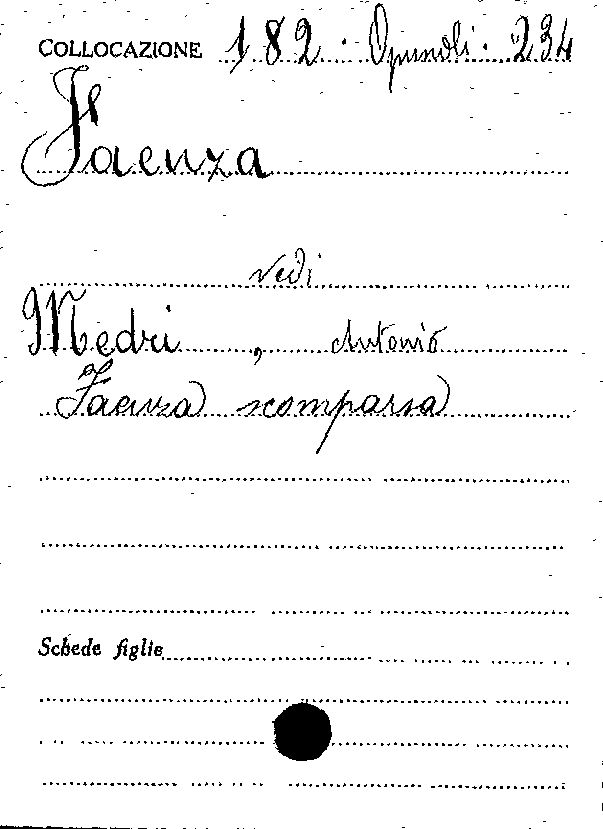 COLLOCAZIONE 182. Opuscoli. 234
Faenza
vedi
Medri, Antonio
Faenza scomparsa
Schede figlie